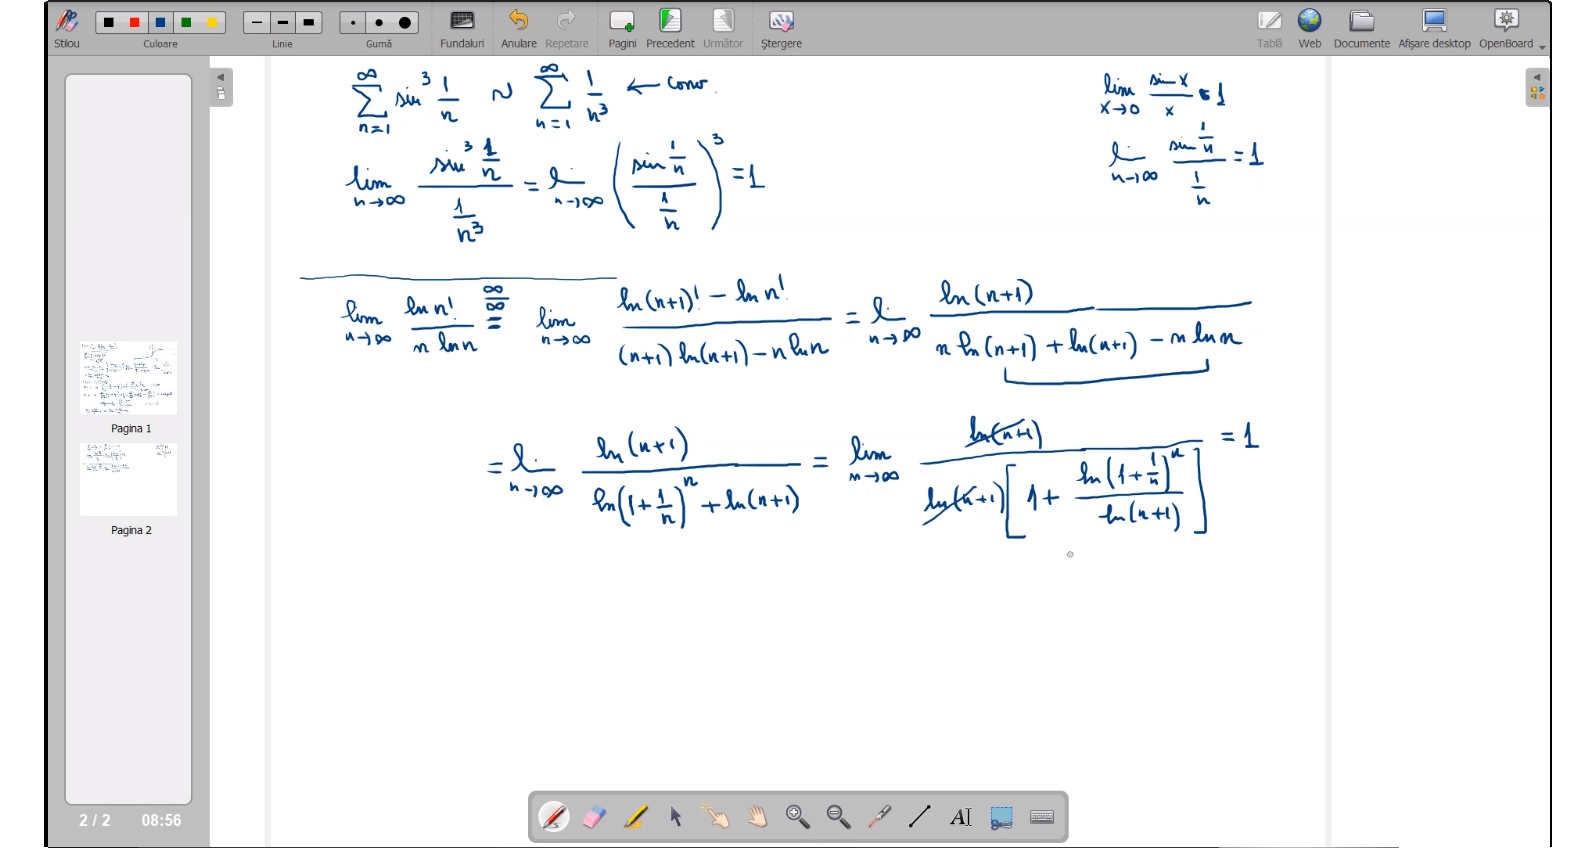 Stilou Culoare Linie Gumă Fundaluri Anulare Repetare Pagini Precedent Următor Ştergere Tablă Web Documente Afişare desktop OpenBoard
∑_{n=1}^{∞} sin³ 1/n ~ ∑_{n=1}^{∞} 1/n³ ← conv.
lim_{x→0} sin x / x = 1
lim_{n→∞} (sin³ 1/n) / (1/n³) = l._{n→∞} ((sin 1/n) / (1/n))³ = 1
l._{n→∞} (sin 1/n) / (1/n) = 1
lim_{n→∞} ln n! / (n ln n) =^{∞/∞} lim_{n→∞} (ln(n+1)! - ln n!) / ((n+1) ln(n+1) - n ln n) = l._{n→∞} ln(n+1) / (n ln(n+1) + ln(n+1) - n ln n)
= l._{n→∞} ln(n+1) / (ln(1+1/n)^n + ln(n+1)) = lim_{n→∞} ln(n+1) / (ln(n+1) [1 + ln(1+1/n)^n / ln(n+1)]) = 1
Pagina 1
Pagina 2
2 / 2 08:56
AI